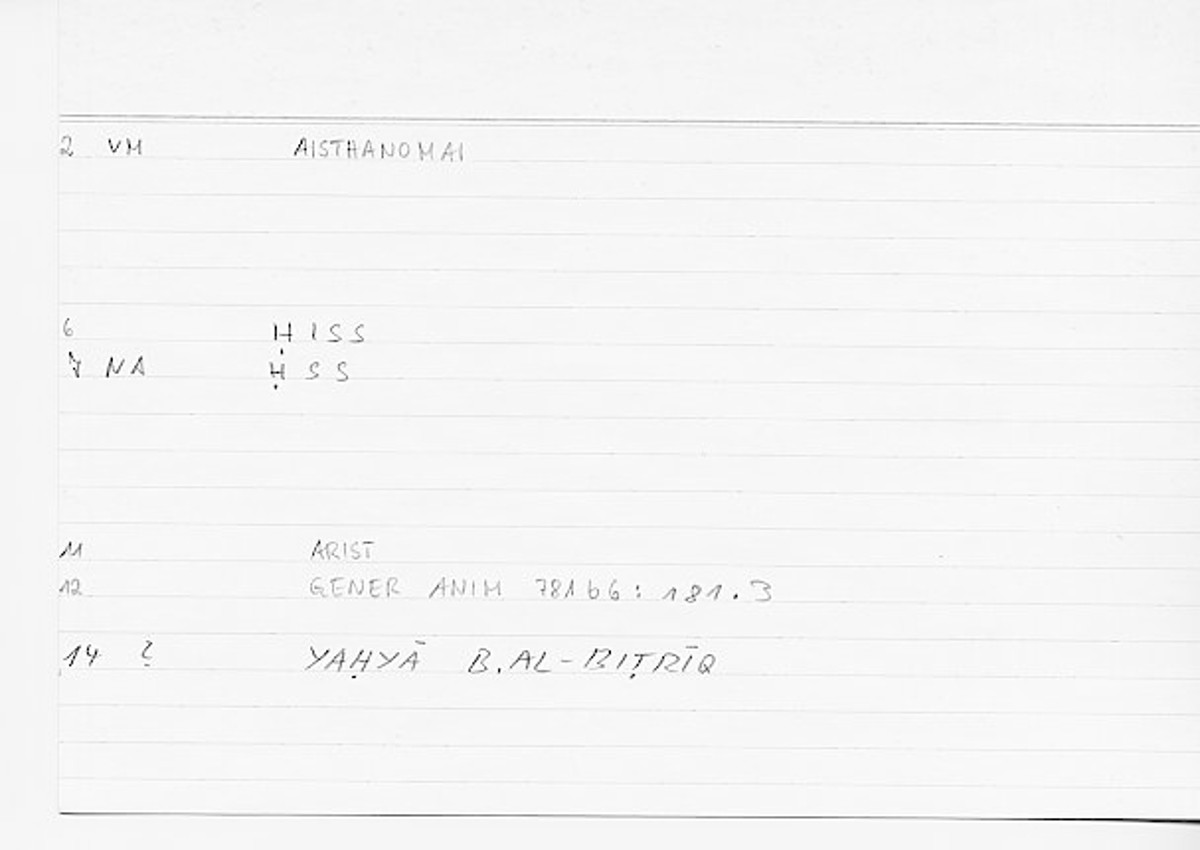 2 VM AISTHANOMAI
6 ḤISS
7 NA ḤSS
11 ARIST
12 GENER ANIM 781b6: 181.3
14 ? YAḤYĀ B.AL-BIṬRĪQ